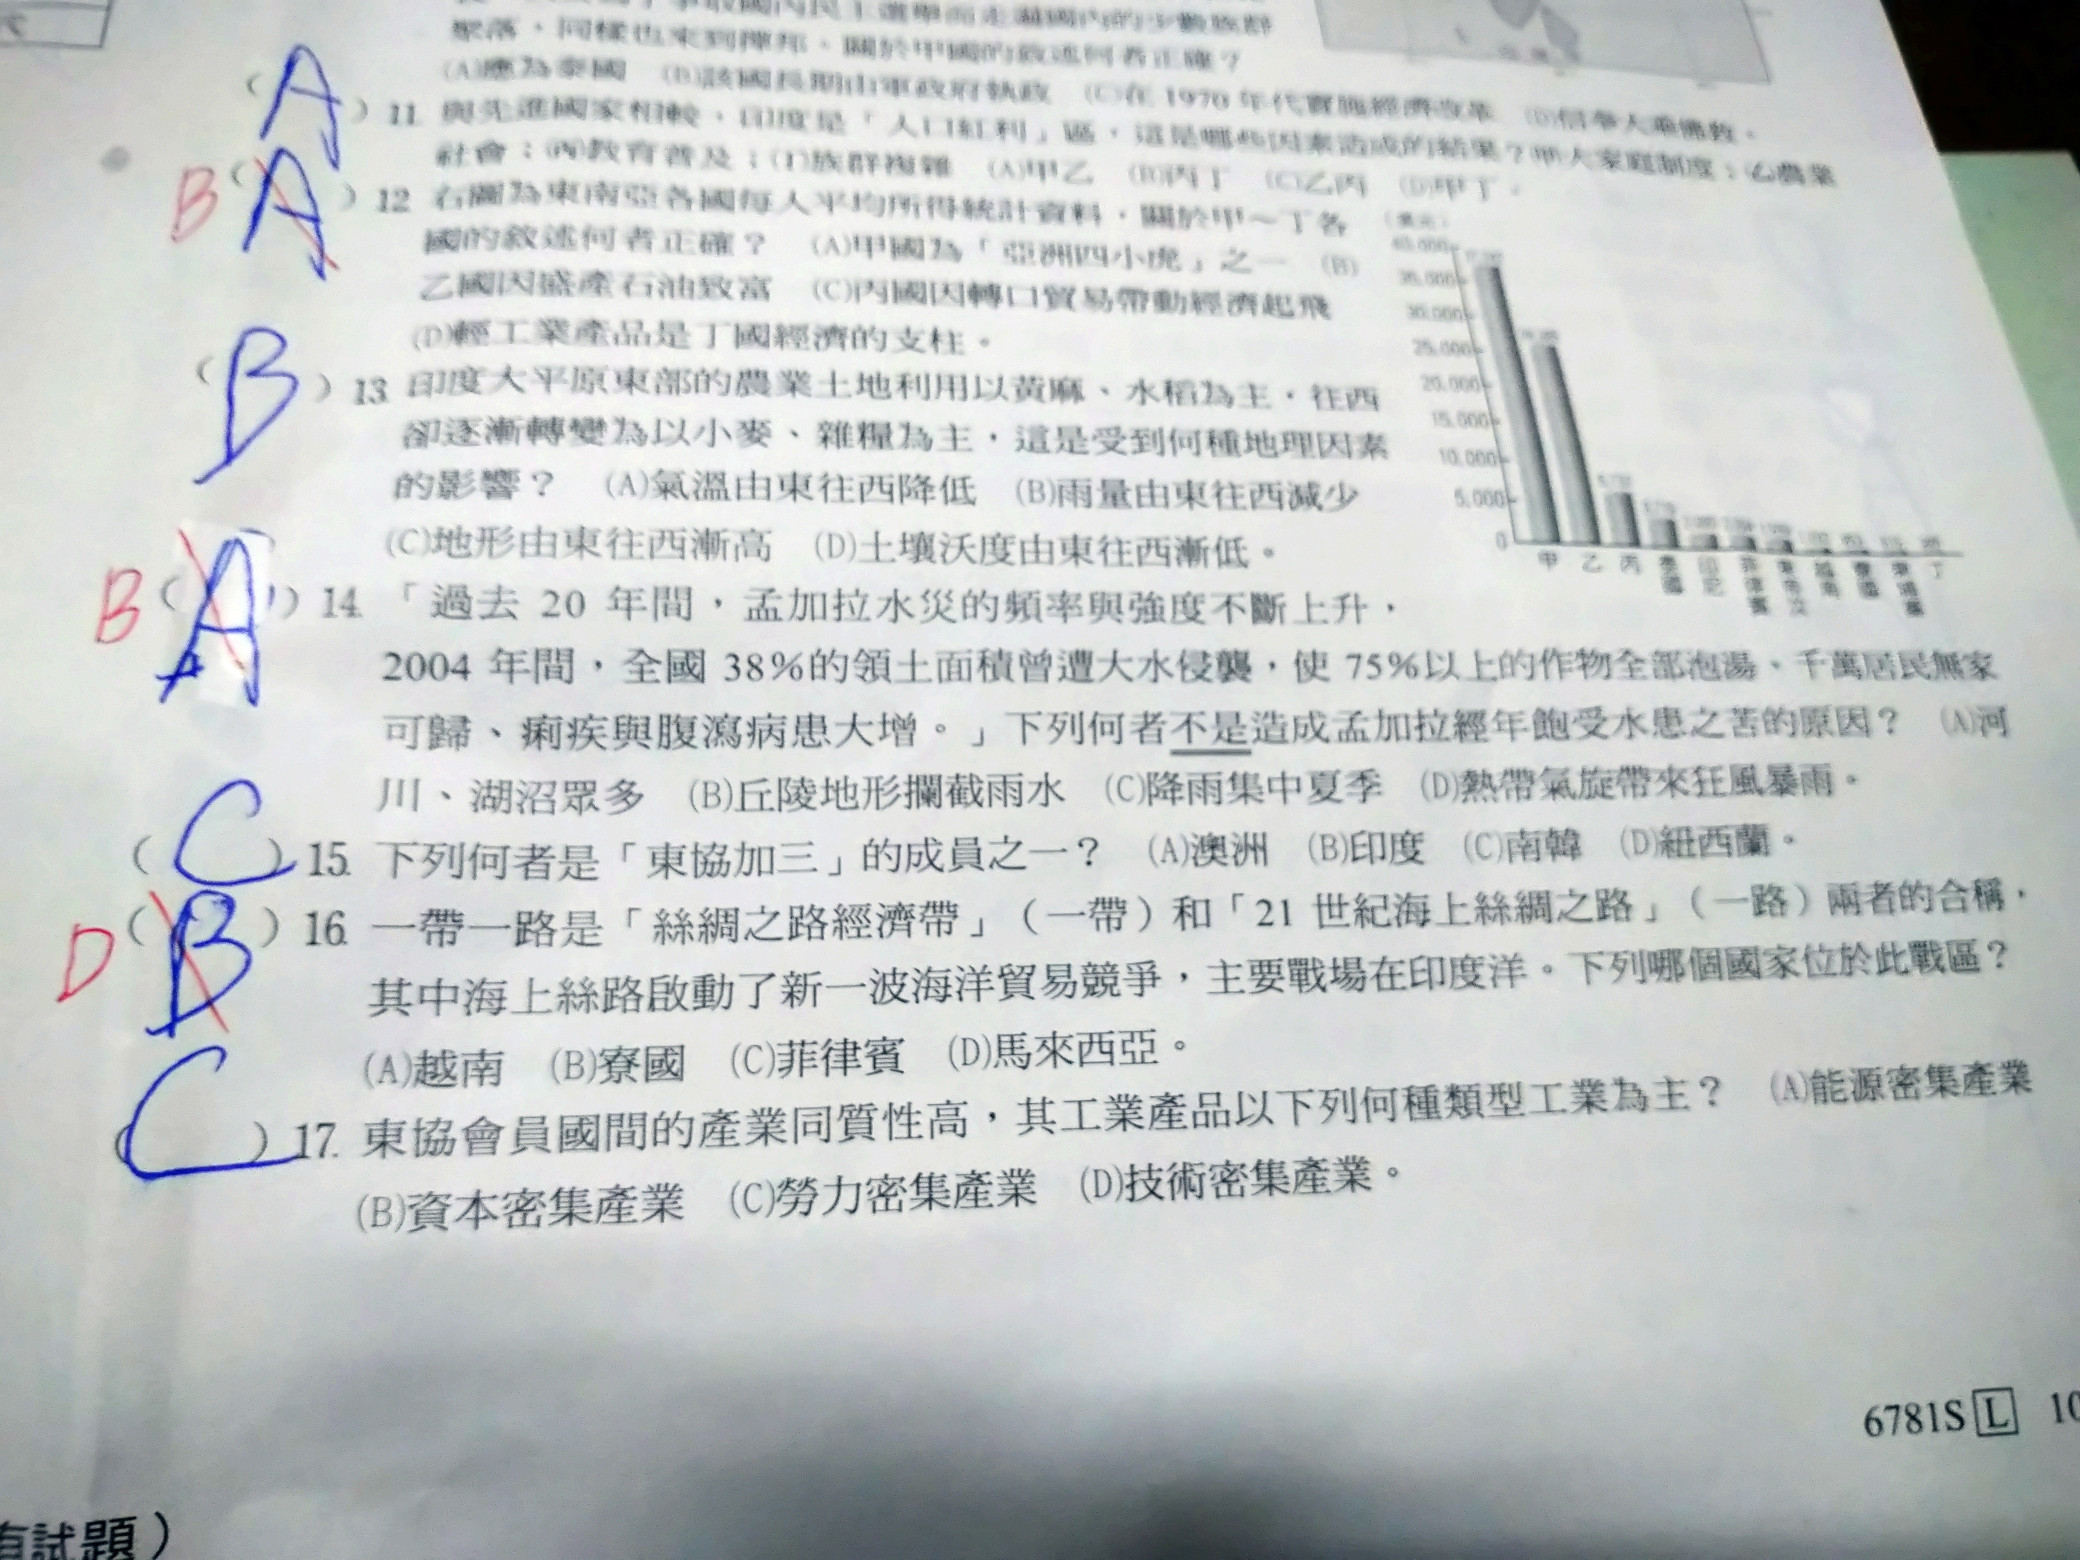 聚落，同樣也來到撣邦。關於甲國的敘述何者正確？
(A)應為泰國 (B)該國長期由軍政府執政 (C)在 1970 年代實施經濟改革 (D)信奉大乘佛教。
(A) 11. 與先進國家相較，印度是「人口紅利」區，這是哪些因素造成的結果？(甲)大家庭制度；(乙)農業
社會；(丙)教育普及；(丁)族群複雜 (A)甲乙 (B)丙丁 (C)乙丙 (D)甲丁。
B (A) 12. 右圖為東南亞各國每人平均所得統計資料，關於甲～丁各
國的敘述何者正確？ (A)甲國為「亞洲四小虎」之一 (B)
乙國因盛產石油致富 (C)丙國因轉口貿易帶動經濟起飛
(D)輕工業產品是丁國經濟的支柱。
(美元)
40,000
35,000
30,000
25,000
20,000
15,000
10,000
5,000
0
甲 乙 丙 泰國 印尼 菲律賓 越南 丁
(B) 13. 印度大平原東部的農業土地利用以黃麻、水稻為主，往西
卻逐漸轉變為以小麥、雜糧為主，這是受到何種地理因素
的影響？ (A)氣溫由東往西降低 (B)雨量由東往西減少
(C)地形由東往西漸高 (D)土壤沃度由東往西漸低。
B (A) 14. 「過去 20 年間，孟加拉水災的頻率與強度不斷上升，
2004 年間，全國 38%的領土面積曾遭大水侵襲，使 75%以上的作物全部泡湯、千萬居民無家
可歸、痢疾與腹瀉病患大增。」下列何者不是造成孟加拉經年飽受水患之苦的原因？ (A)河
川、湖沼眾多 (B)丘陵地形攔截雨水 (C)降雨集中夏季 (D)熱帶氣旋帶來狂風暴雨。
(C) 15. 下列何者是「東協加三」的成員之一？ (A)澳洲 (B)印度 (C)南韓 (D)紐西蘭。
D (B) 16. 一帶一路是「絲綢之路經濟帶」（一帶）和「21 世紀海上絲綢之路」（一路）兩者的合稱，
其中海上絲路啟動了新一波海洋貿易競爭，主要戰場在印度洋。下列哪個國家位於此戰區？
(A)越南 (B)寮國 (C)菲律賓 (D)馬來西亞。
(C) 17. 東協會員國間的產業同質性高，其工業產品以下列何種類型工業為主？ (A)能源密集產業
(B)資本密集產業 (C)勞力密集產業 (D)技術密集產業。
6781S L 10
有試題）